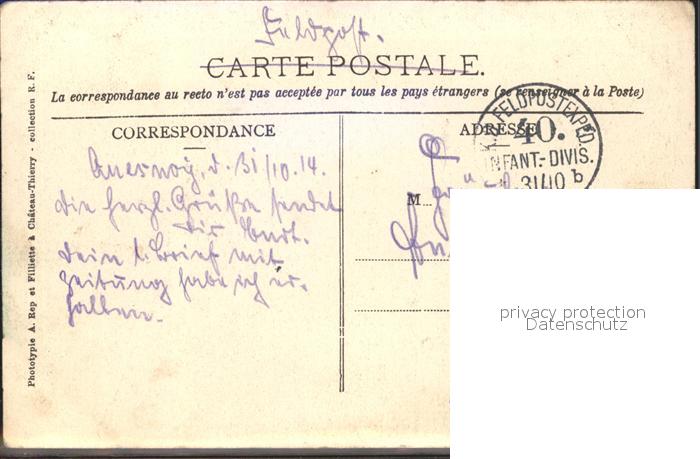 Feldpost.
CARTE POSTALE.
La correspondance au recto n'est pas acceptée par tous les pays étrangers (se renseigner à la Poste)
CORRESPONDANCE
ADRESSE
K.S. FELDPOSTEXPED.
40.
INFANT.-DIVIS.
31/10
b
Quesnoy, d. 31/10. 14.
Die herzl. Grüße sendet
Dir
Dein l. Brief mit
Zeitung habe ich er-
halten.
M
Phototypie A. Rep et Filliette à Château-Thierry - collection R. F.
privacy protection
Datenschutz